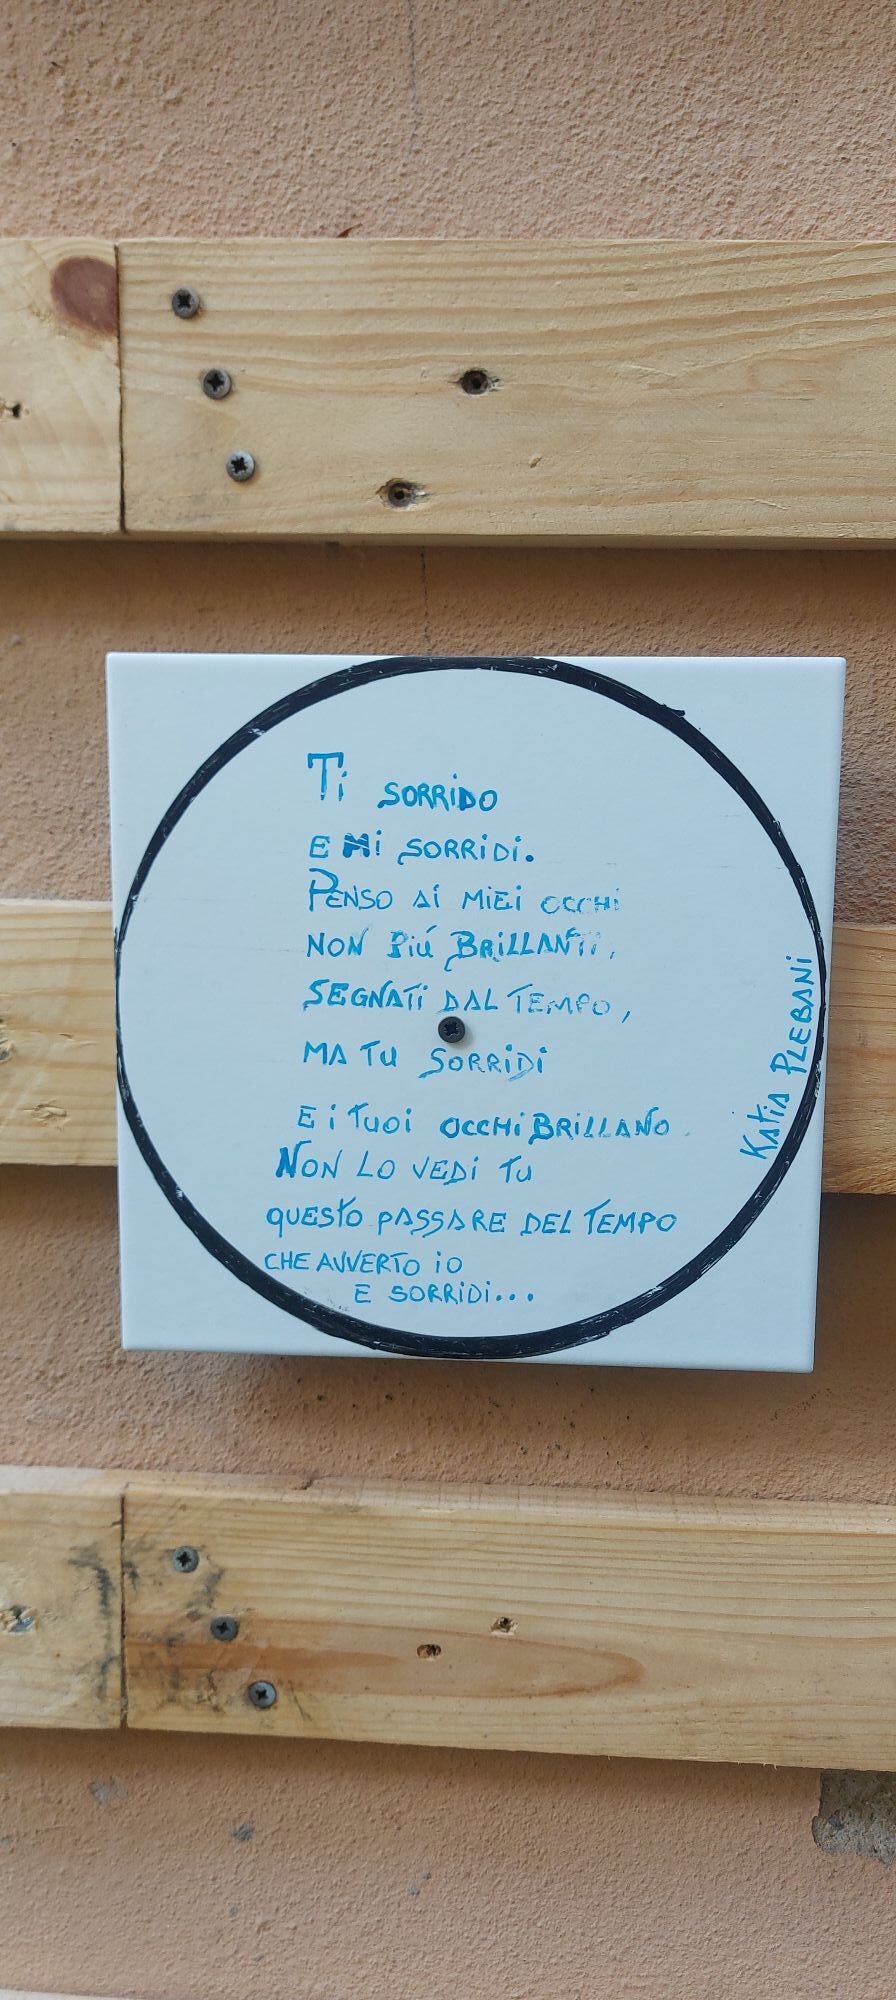 Ti SORRiDO
E Mi SORRiDi.
PENSO Ai MiEi OCCHi
NON PiÚ BRiLLANTi,
SEGNATi DAL TEMPO,
MA TU SORRiDi
E i TUOi OCCHi BRiLLANO.
NON LO VEDi TU
QUESTO PASSARE DEL TEMPO
CHE AVVERTO iO
E SORRiDi...
KATiA PLEBANi